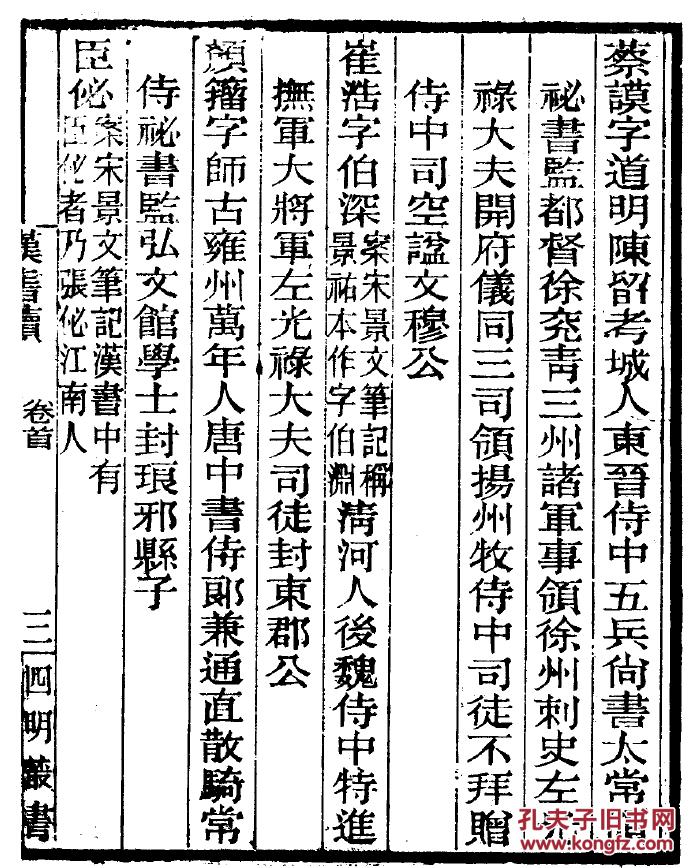 蔡謨字道明陳留考城人東晉侍中五兵尙書太常領
祕書監都督徐兗靑三州諸軍事領徐州刺史左光
祿大夫開府儀同三司領揚州牧侍中司徒不拜贈
侍中司空諡文穆公
崔浩字伯深案宋景文筆記稱景祐本作字伯淵淸河人後魏侍中特進
撫軍大將軍左光祿大夫司徒封東郡公
顏籒字師古雍州萬年人唐中書侍郞兼通直散騎常
侍祕書監弘文館學士封琅邪縣子
臣佖案宋景文筆記漢書中有臣佖者乃張佖江南人
漢書讀 卷首 三 四明叢書
孔夫子旧书网
www.kongfz.com